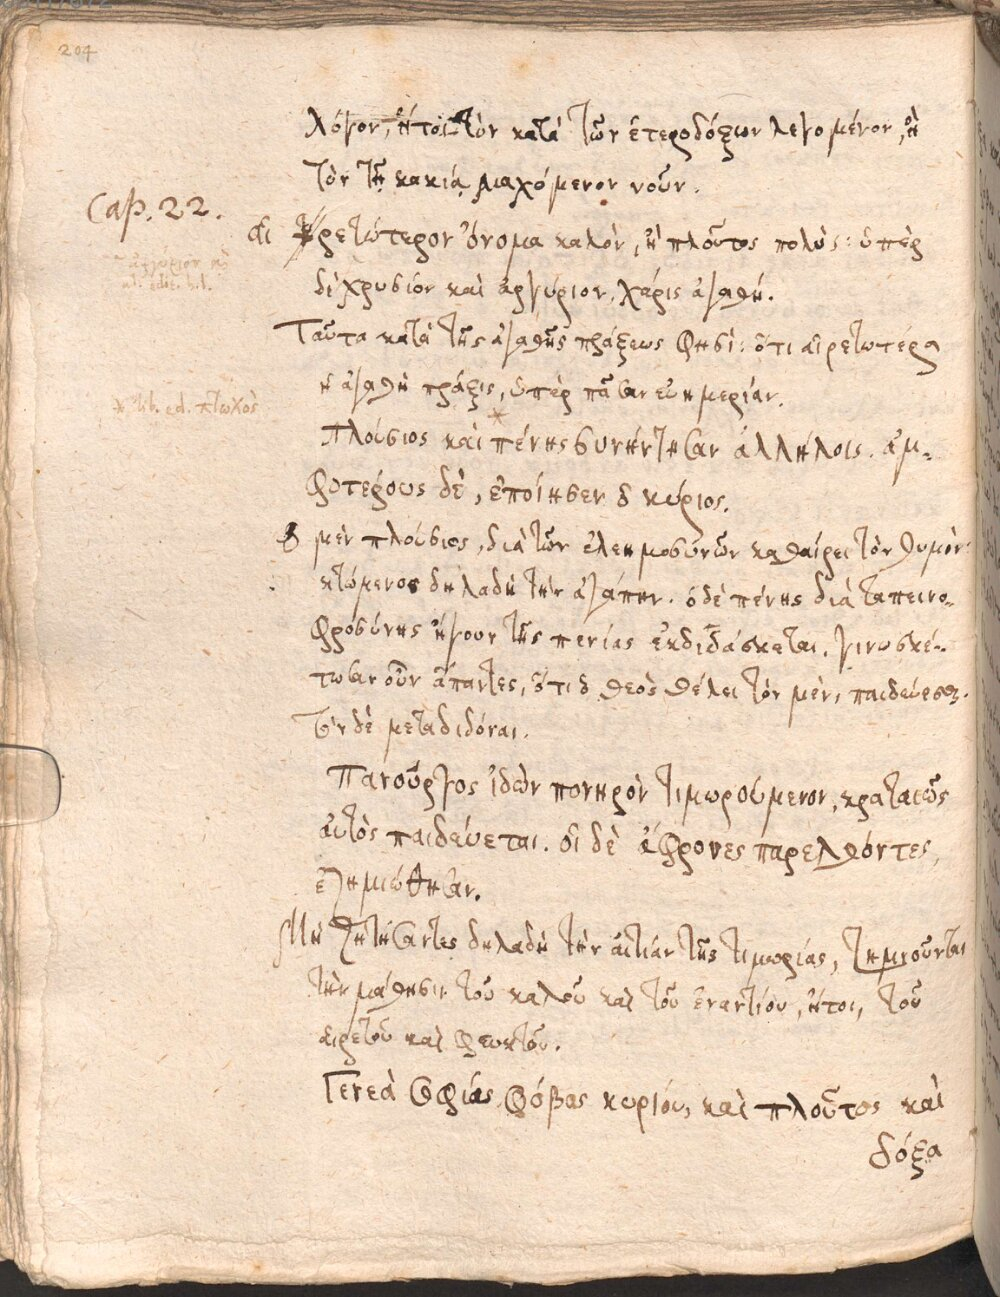 204
λόγον, ἤτοι τὸν κατὰ τῶν ἑτεροδόξων λεγομένον, ἢ
τὸν τῇ κακίᾳ μαχόμενον νοῦν.
Cap. 22.
αἱρετώτερον ὄνομα καλὸν, ἢ πλοῦτος πολύς: ὑπὲρ
δὲ χρυσίον καὶ ἀργύριον, χάρις ἀγαθή.
Ταῦτα κατὰ τῆς ἀγαθῆς πράξεως φησὶ: ὅτι αἱρετωτέρα
ἡ ἀγαθὴ πρᾶξις, ὑπὲρ πᾶσαν εὐημερίαν.
* lib. ed. πτωχὸς
πλούσιος καὶ πένης* συνήντησαν ἀλλήλοις. ἀμ-
φοτέρους δὲ, ἐποίησεν ὁ κύριος.
ὁ μὲν πλούσιος, διὰ τῶν ἐλεημοσύνων καθαίρει τὸν θυμὸν:
κτώμενος δηλαδὴ τὴν ἀγάπην. ὁ δὲ πένης διὰ ταπεινο-
φροσύνης ἤγουν τῆς πενίας ἐκδιδάσκεται. γινωσκέ-
τωσαν οὖν ἅπαντες, ὅτι ὁ θεὸς θέλει τὸν μὲν, παιδεύεσθ.
τὸν δὲ μεταδιδόναι.
Πανοῦργος ἰδὼν πονηρὸν τιμωρούμενον, κραταιῶς
αὐτὸς παιδεύεται. οἱ δὲ ἄφρονες παρελθόντες,
ἐζημιώθησαν.
Μὴ ζητήσαντες δηλαδὴ τὴν αἰτίαν τῆς τιμωρίας, ζημιοῦνται
τὴν μάθησιν τοῦ καλοῦ καὶ τοῦ ἐναντίου, ἤτοι, τοῦ
αἱρετοῦ καὶ φευκτοῦ.
Γενεὰ σοφίας φόβος κυρίου, καὶ πλοῦτος καὶ
δόξα